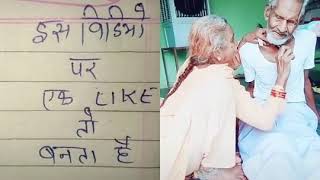 इस विडियो
पर
एक LIKE
तो
बनता है